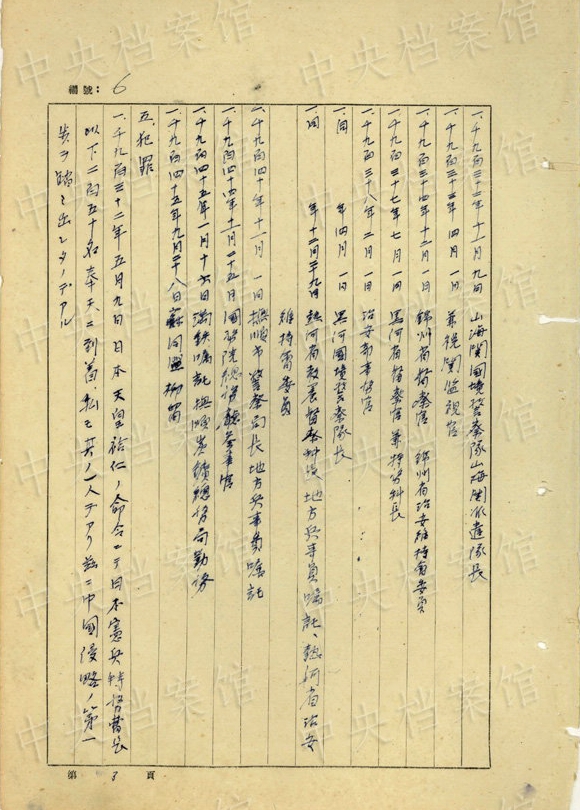 編號：6
一、千九百三十二年十一月九日　山海関国境警察隊山海関派遣隊長
一、千九百三十三年四月一日　兼税関監視官
一、千九百三十四年十二月一日　錦州省警察官　錦州省治安維持会委員
一、千九百三十七年七月一日　黒河省警察官兼特務科長
一、千九百三十八年二月一日　治安部事務官
一、同　年四月一日　黒河国境警察隊長
一、同　年十二月二十九日　熱河省警務督察科長　地方兵事員嘱託、熱河省治安
維持会委員
一、千九百四十年十一月一日　撫順市警察局長地方兵事員嘱託
一、千九百四十四年十一月二十五日　国務院総務庁参事官
一、千九百四十五年一月十六日　満鉄嘱託撫順炭鉱総務局勤務
一、千九百四十五年九月二十八日　蘇同盟抑留
五、犯罪
一、千九百三十二年五月九日日本天皇裕仁ノ命令ニテ日本憲兵特務曹長
以下二百五十名奉天ニ到着、私モ其ノ一人デアリ茲ニ中国侵略ノ第一
歩ヲ踏ミ出シターデアル
第 3 頁
中央档案馆